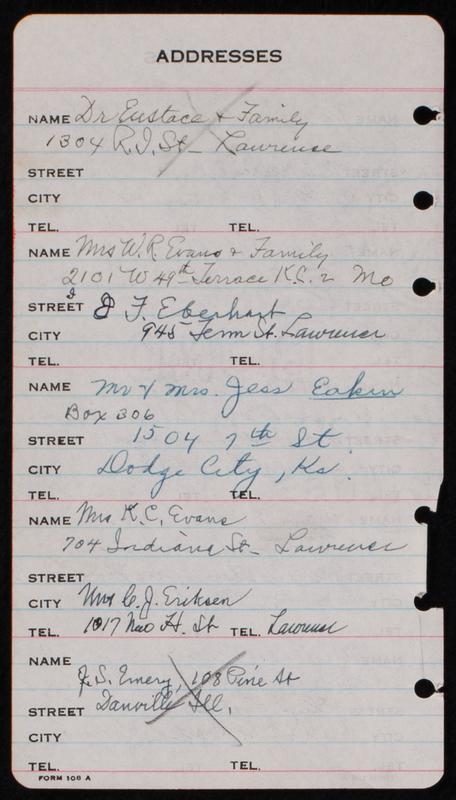 ADDRESSES
NAME Dr Eustace & Family
1304 R.I. St - Lawrence
STREET
CITY
TEL. TEL.
NAME Mrs W.R. Evans & Family
2101 W 49th Terrace K.C. 2 Mo
STREET J F. Eberhart
CITY 945 Tenn St. Lawrence
TEL. TEL.
NAME Mr & Mrs. Jess Eakin
Box 306
STREET 1504 7th St.
CITY Dodge City, Ks.
TEL. TEL.
NAME Mrs K.C. Evans
704 Indiana St - Lawrence
STREET
CITY Mrs C.J. Eriksen
TEL. 1017 St TEL. Lawrence
NAME
J.S. Emery, 108 Pine St
STREET Danville Ill.
CITY
TEL. TEL.
FORM 108 A